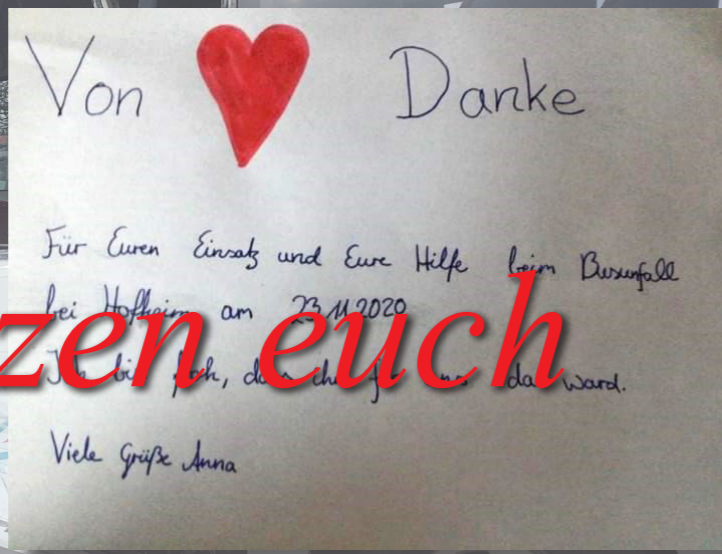 Von Danke
Für Euren Einsatz und Eure Hilfe beim Busunfall
bei Hofheim am 23.11.2020
zen euch
Ich bin froh, dass ihr für uns da ward.
Viele Grüße Anna